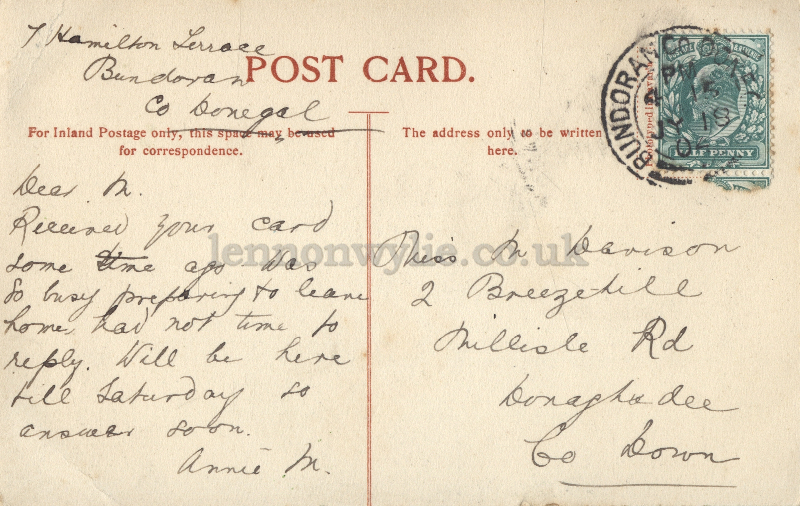 7 Hamilton Terrace
Bundoran
Co Donegal
POST CARD.
For Inland Postage only, this space may be used
for correspondence.
The address only to be written
here.
BUNDORAN CO.
PM
15
JY 18
HALF PENNY
Dear M.
Received your card
some time ago was
so busy preparing to leave
home, had not time to
reply. Will be here
till Saturday so
answer soon.
Annie M.
Miss M Davison
2 Breezehill
Millisle Rd
Donaghadee
Co Down
lennonwylie.co.uk